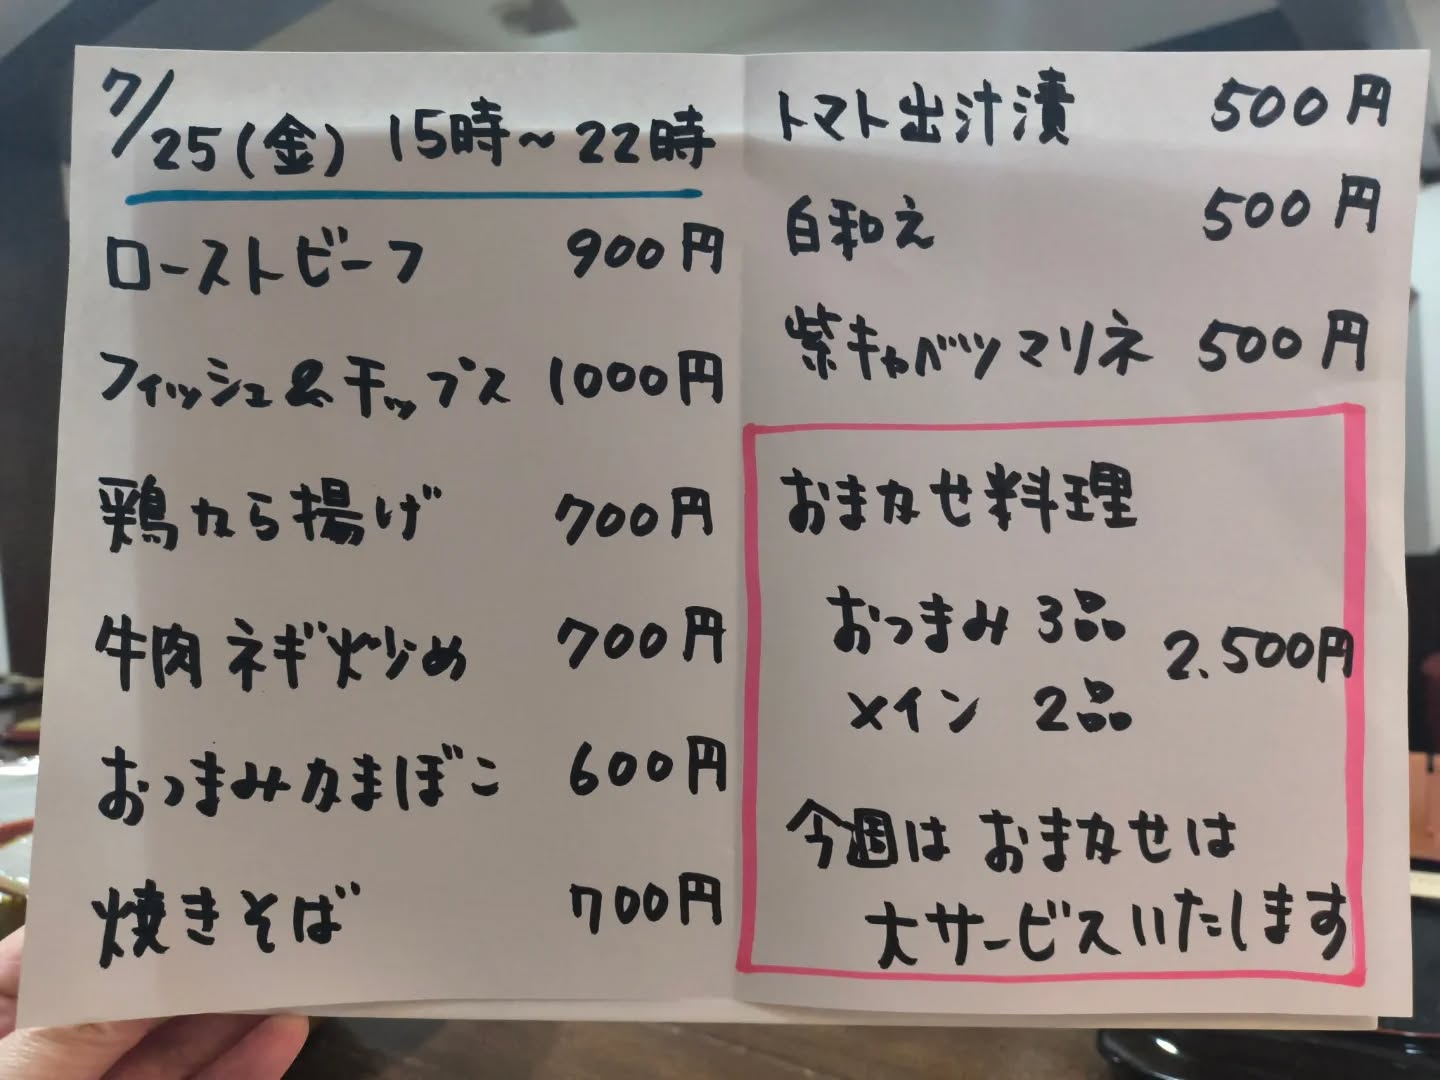 7/25(金) 15時~22時
ローストビーフ 900円
フィッシュ&チップス 1000円
鶏から揚げ 700円
牛肉ネギ炒め 700円
おつまみかまぼこ 600円
焼きそば 700円
トマト出汁漬 500円
白和え 500円
紫キャベツマリネ 500円
おまかせ料理
おつまみ 3品
2.500円
メイン 2品
今週は おまかせは
大サービスいたします